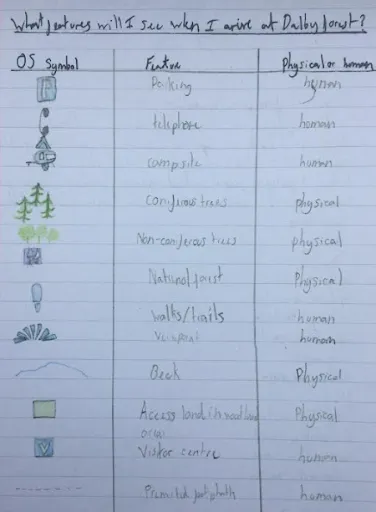 What features will I see when I arive at Dalby forest?
OS Symbol Feature Physical or human
P Parking human
telephone human
campsite human
coniferous trees physical
Non-coniferous trees physical
National forist Physical
walks/trails human
Veiwpoint human
Beck Physical
Access land in woodland Physical
area
V Visitor centre human
Primited footphath human